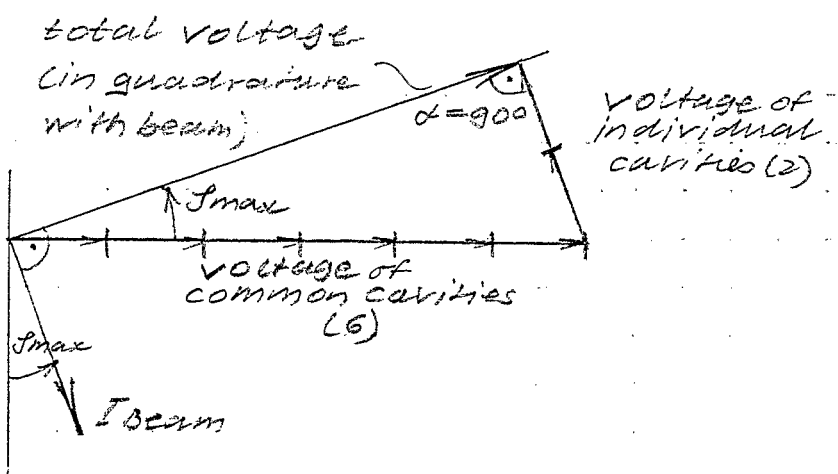 total voltage
(in quadrature
with beam)
α=900
voltage of
individual
cavities (2)
φmax
voltage of
common cavities
(6)
φmax
I Beam